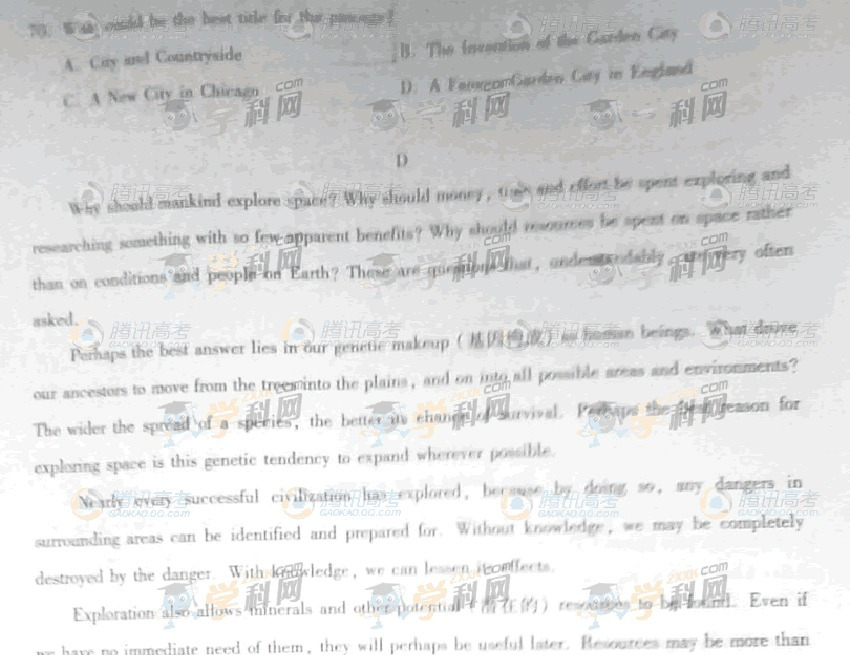 70. would be the best title for the passage?
A. City and Countryside
B. The Invention of the Garden City
C. A New City in Chicago
D. A Garden City in England
D
Why should mankind explore space? Why should money, time and effort be spent exploring and
researching something with so few apparent benefits? Why should resources be spent on space rather
than on conditions and people on Earth? These are questions that, understandably, are very often
asked.
Perhaps the best answer lies in our genetic makeup (基因构成) as human beings. What drove
our ancestors to move from the trees into the plains, and on into all possible areas and environments?
The wider the spread of a species, the better its chance of survival. Perhaps the best reason for
exploring space is this genetic tendency to expand wherever possible.
Nearly every successful civilization has explored, because by doing so, any dangers in
surrounding areas can be identified and prepared for. Without knowledge, we may be completely
destroyed by the danger. With knowledge, we can lessen its effects.
Exploration also allows minerals and other potential (潜在的) resources to be found. Even if
we have no immediate need of them, they will perhaps be useful later. Resources may be more than
腾讯高考
GAOKAO.QQ.COM
学科网
ZXXK.com